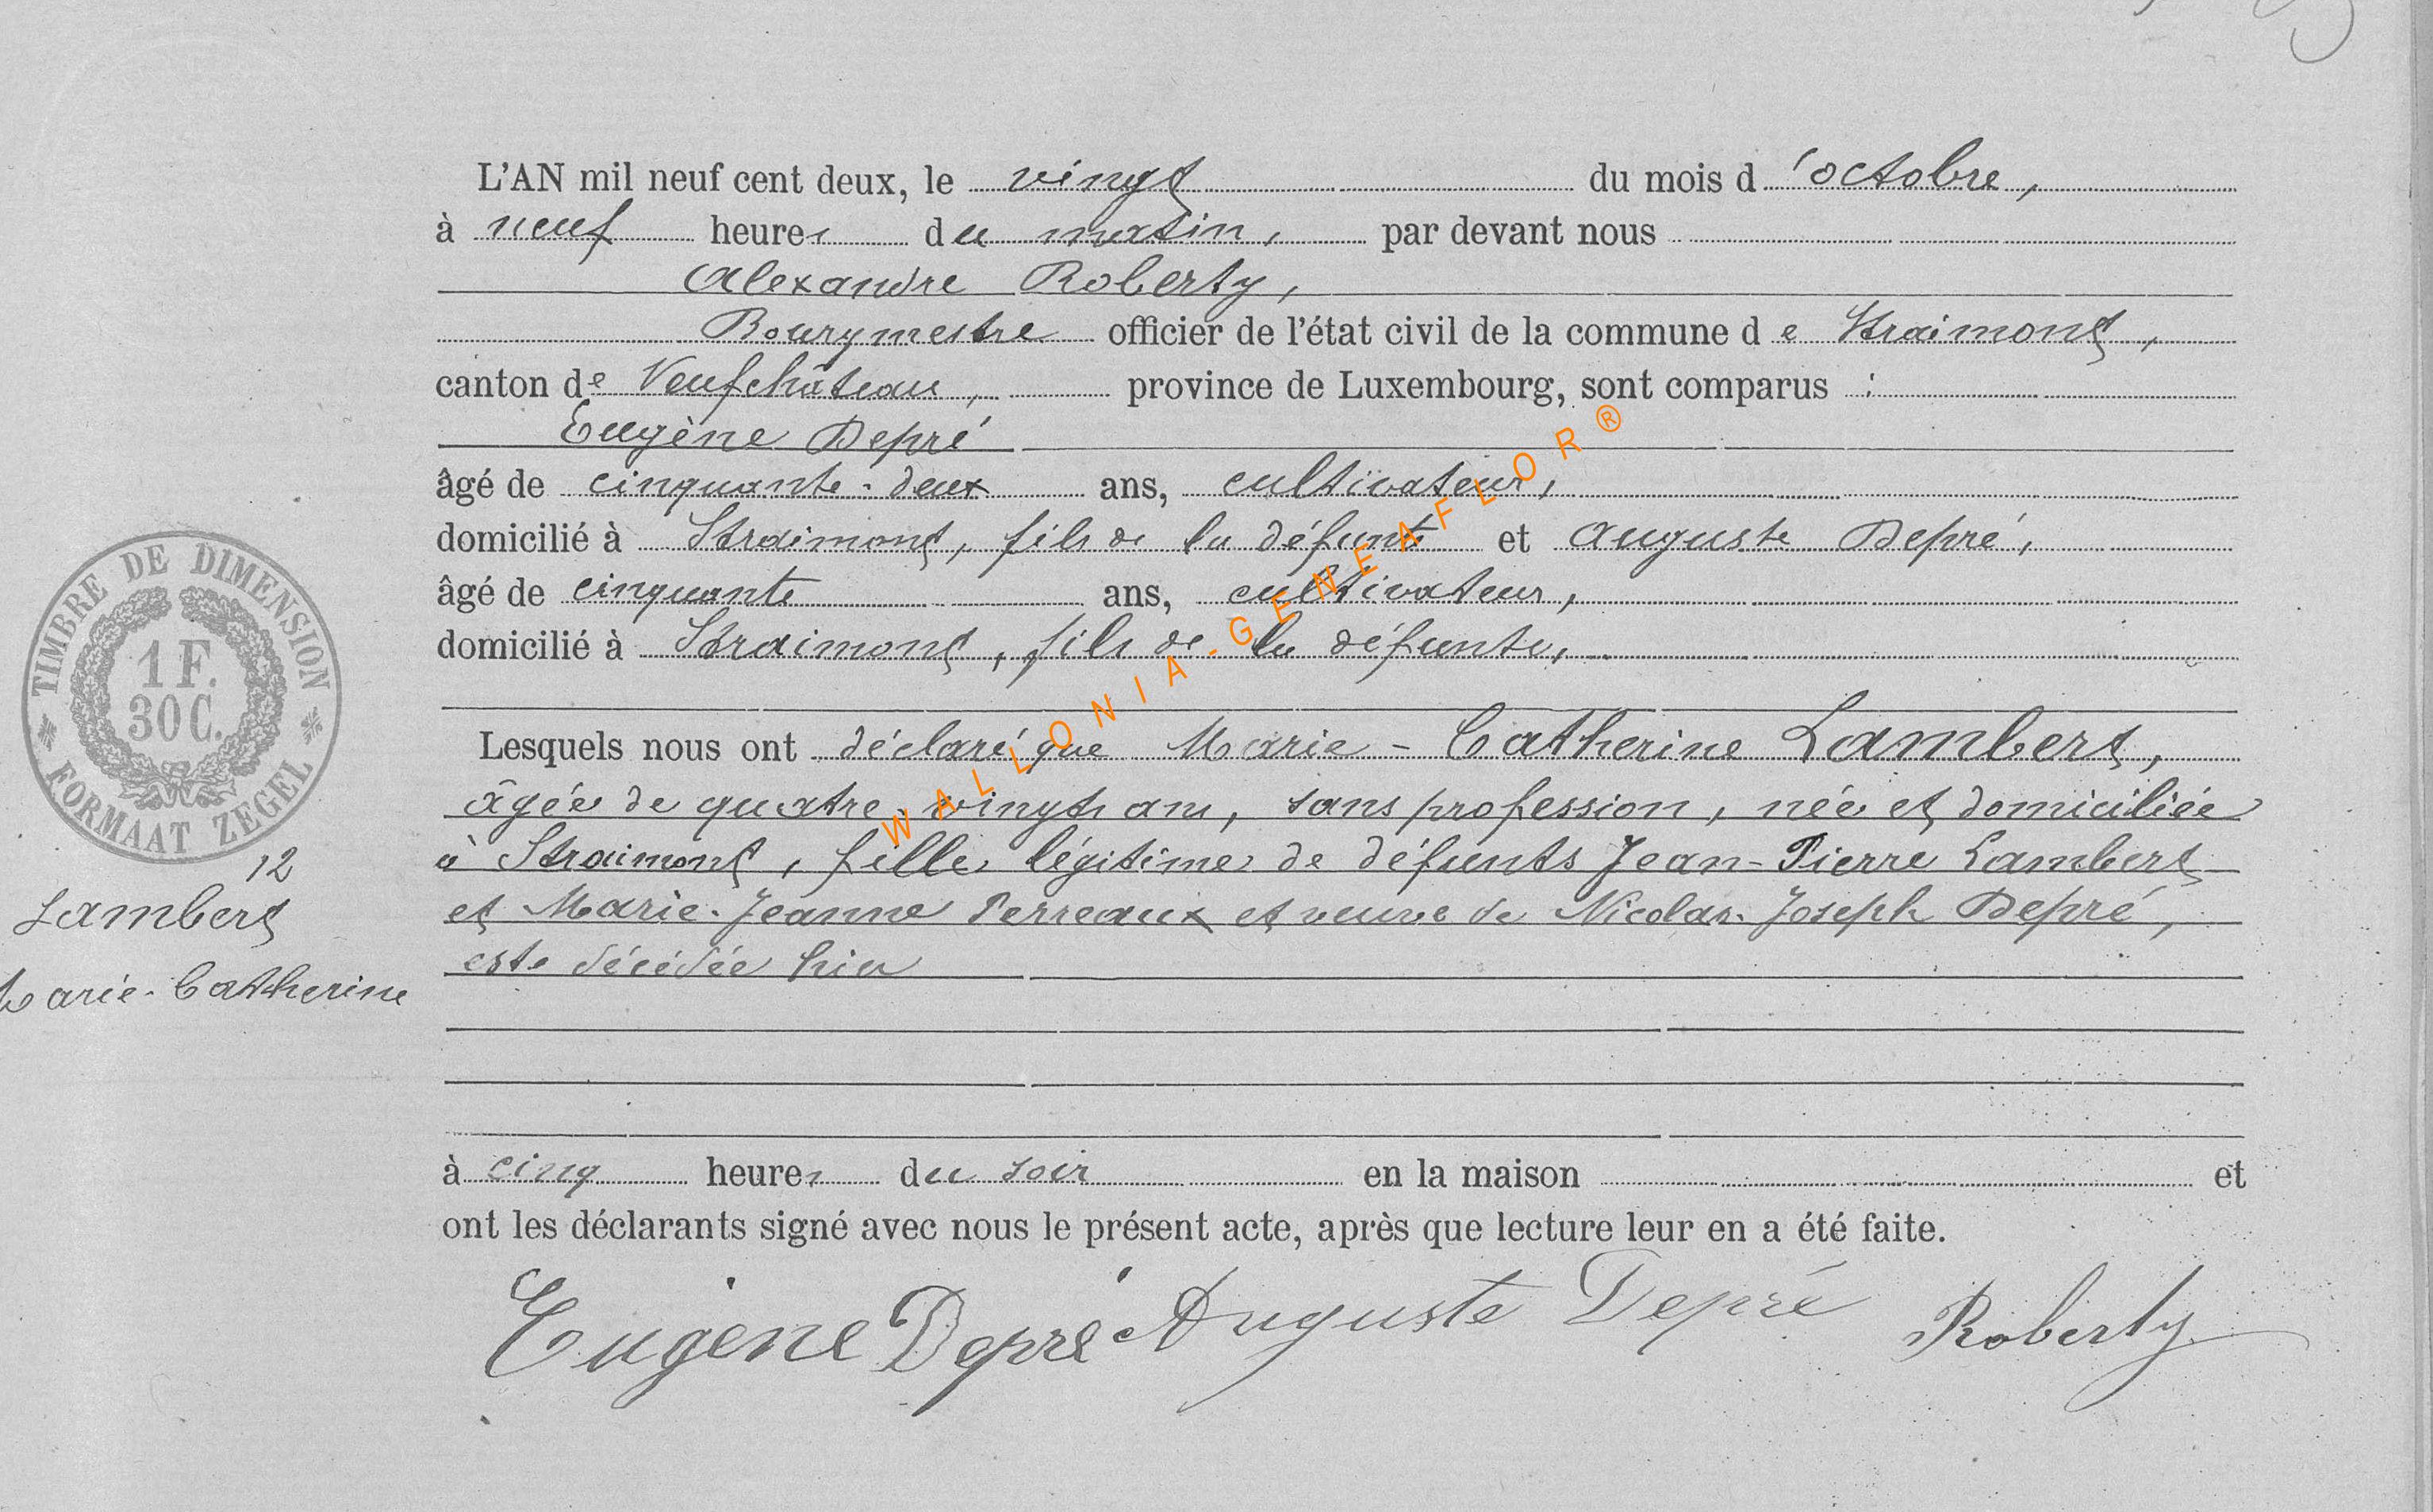 L'AN mil neuf cent deux, le vingt du mois d'octobre,
à neuf heures du matin, par devant nous
Alexandre Roberty,
Bourgmestre officier de l'état civil de la commune de Straimont,
canton de Neufchâteau, province de Luxembourg, sont comparus :
Eugène Depré
âgé de cinquante-deux ans, cultivateur,
domicilié à Straimont, fils de la défunte et Auguste Depré,
âgé de cinquante ans, cultivateur,
domicilié à Straimont, fils de la défunte,
Lesquels nous ont déclaré que Marie-Catherine Lambert,
âgée de quatre-vingts ans, sans profession, née et domiciliée
à Straimont, fille légitime de défunts Jean-Pierre Lambert
et Marie-Jeanne Perreaux et veuve de Nicolas-Joseph Depré,
est décédée hier
à cinq heures du soir en la maison et
ont les déclarants signé avec nous le présent acte, après que lecture leur en a été faite.
Eugène Depré Auguste Depré Roberty
TIMBRE DE DIMENSION
1 F.
30 C.
FORMAAT ZEGEL
12
Lambert
Marie-Catherine
WALLONIA-GENEAFLOR®